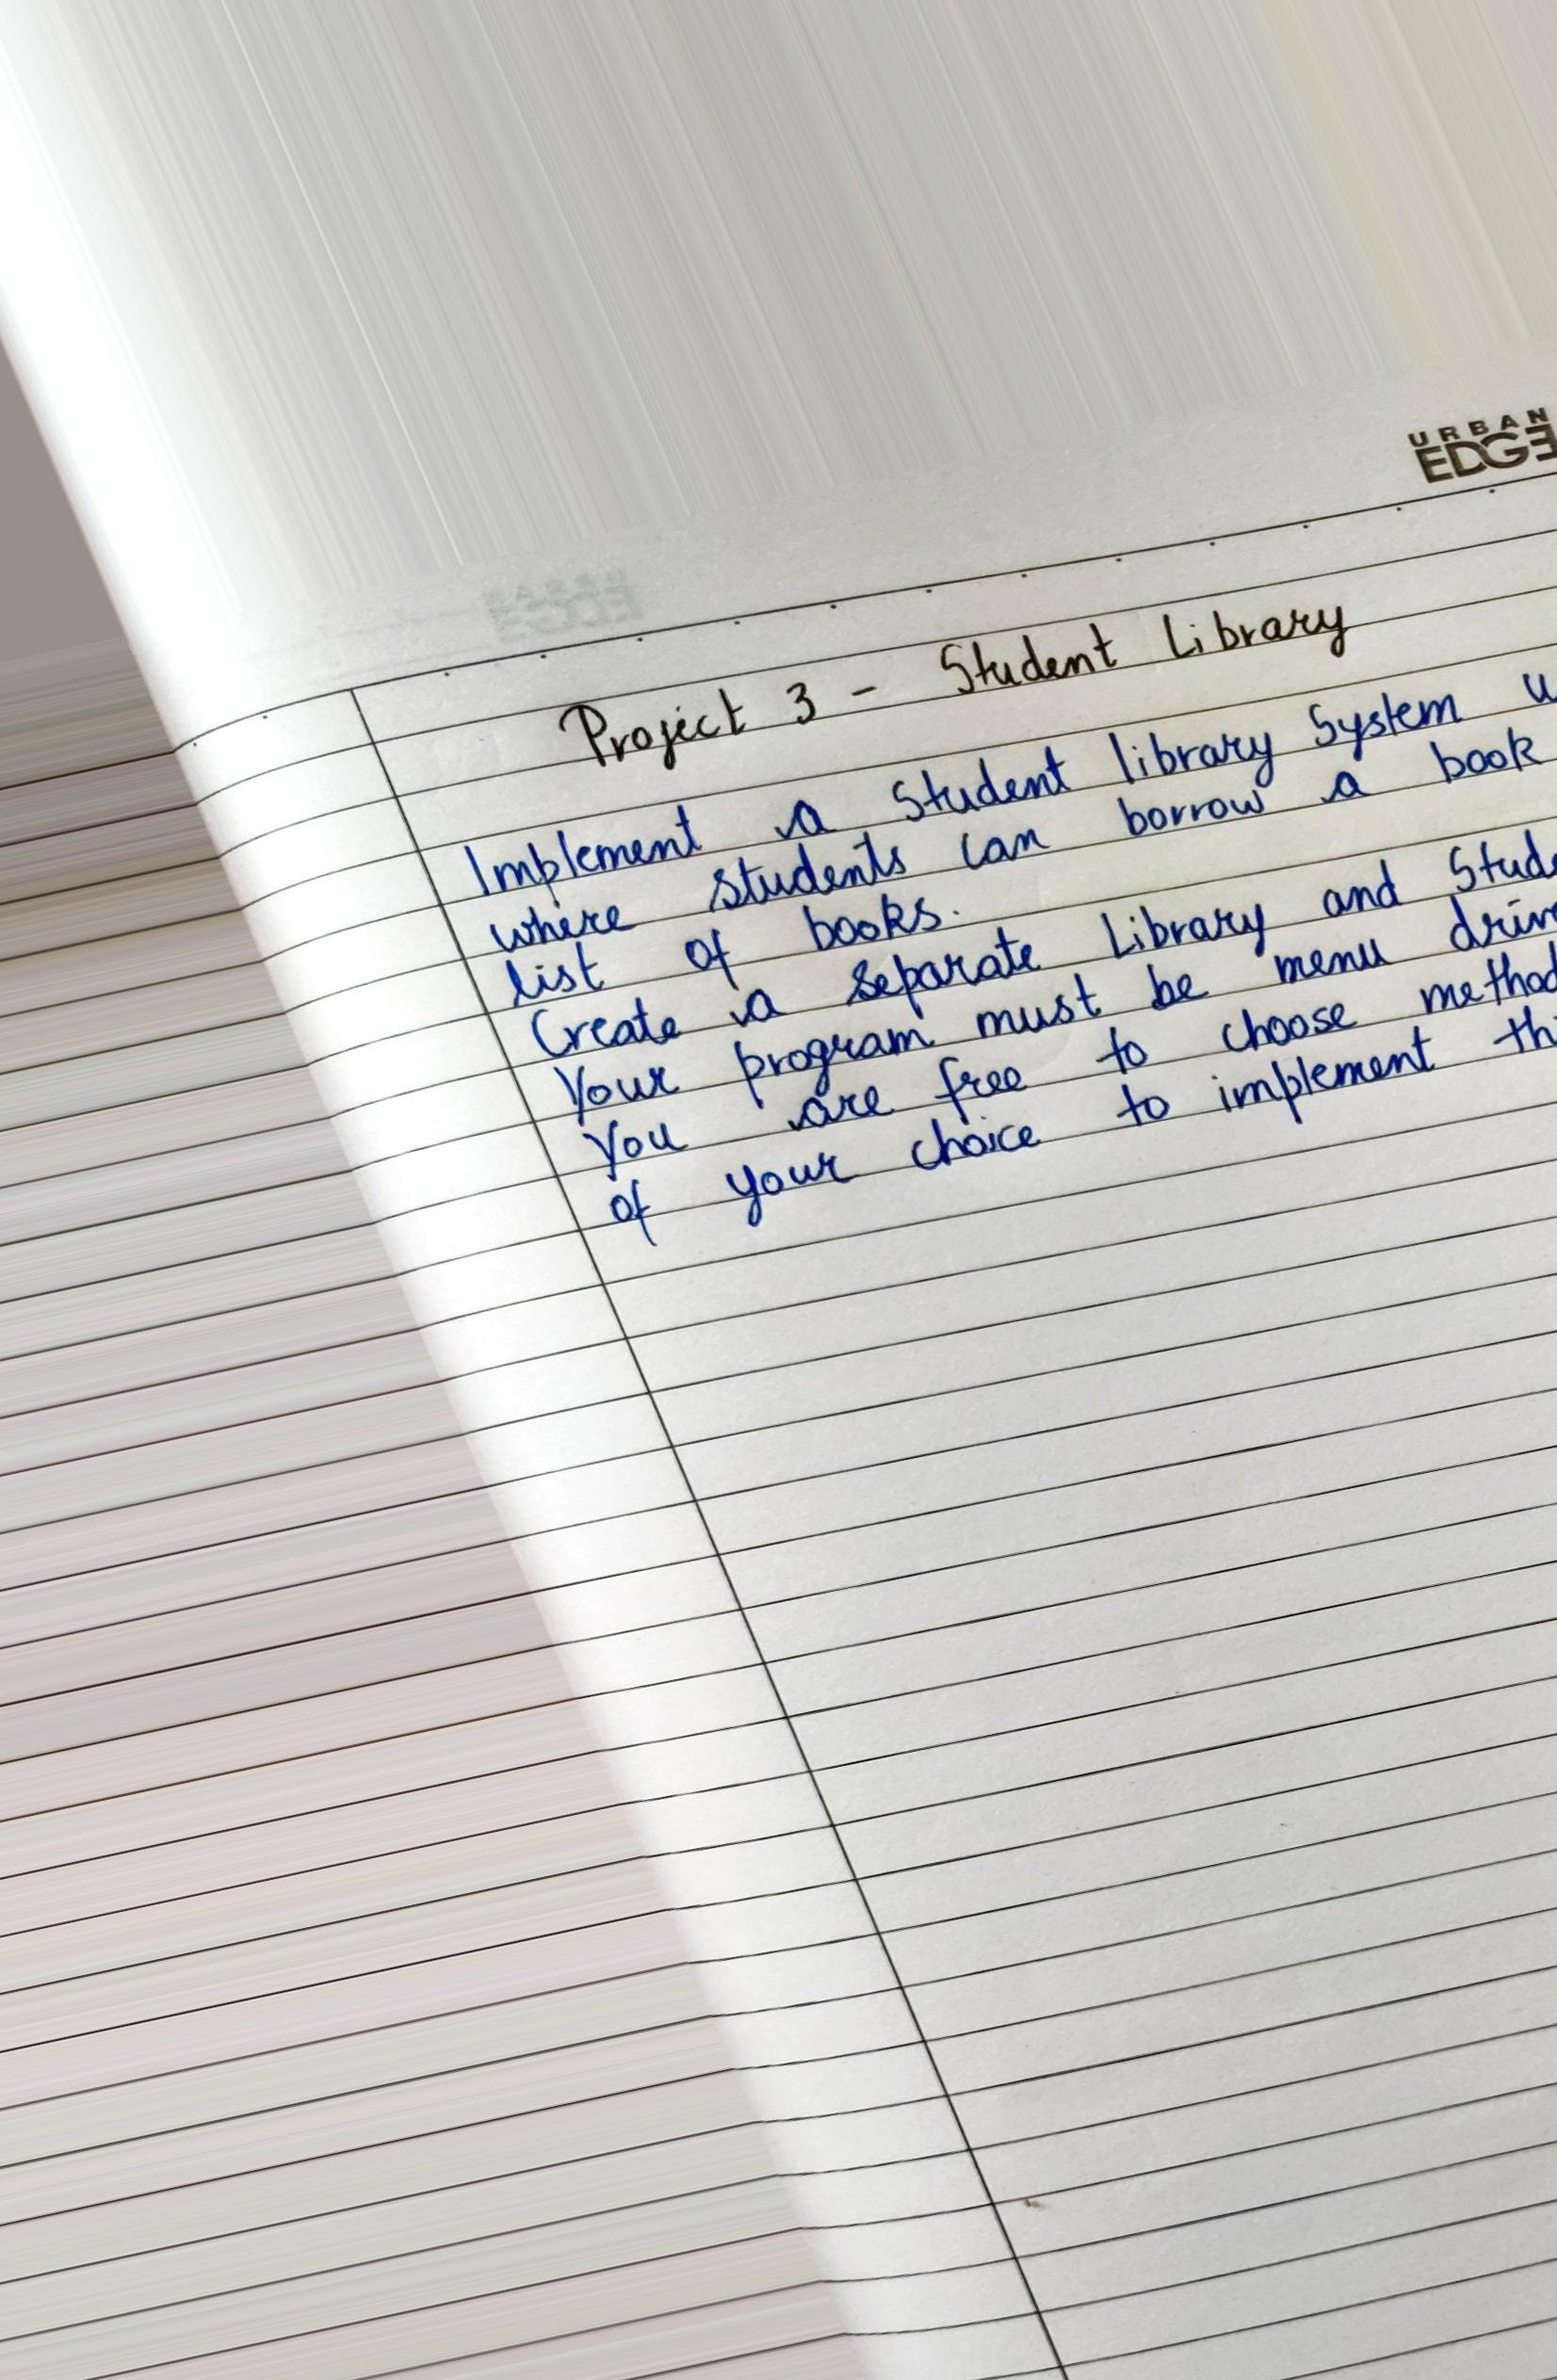 URBAN
EDGE
Project 3 - Student Library
Implement a student library System
where students can borrow a book
list of books.
Create a separate Library and
Your program must be menu
You are free to choose
of your choice to implement